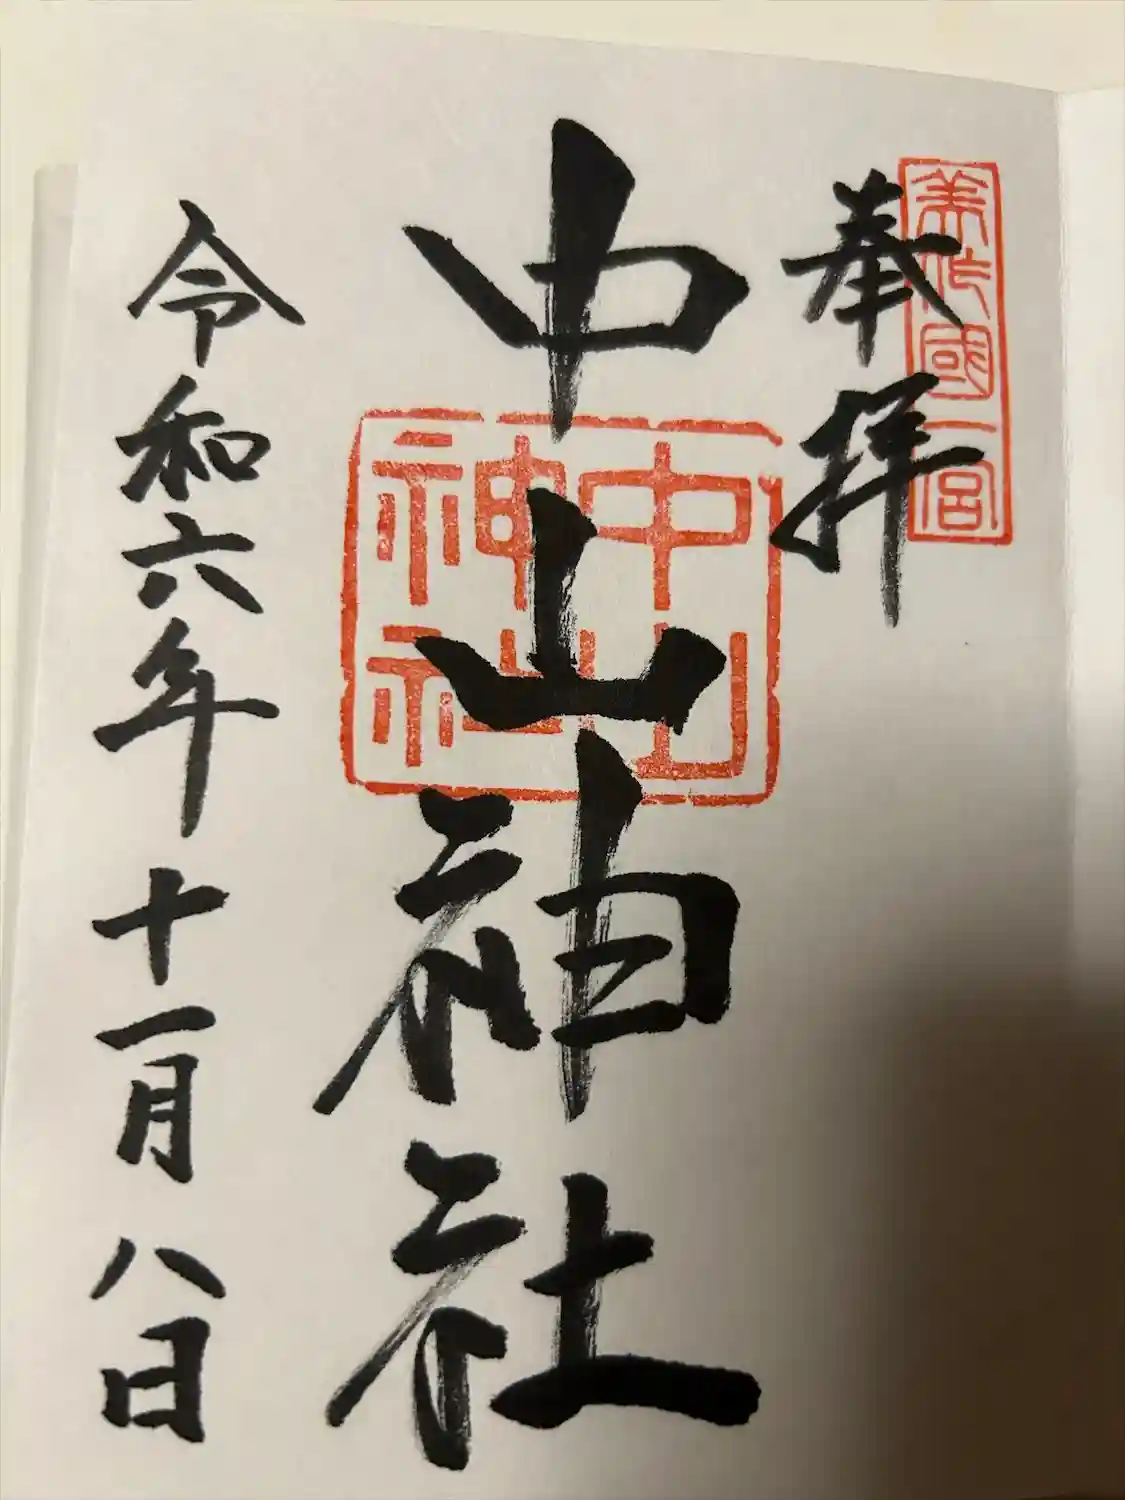 美作國一宮
奉拝
中山神社
中山
神社
令和六年十一月八日